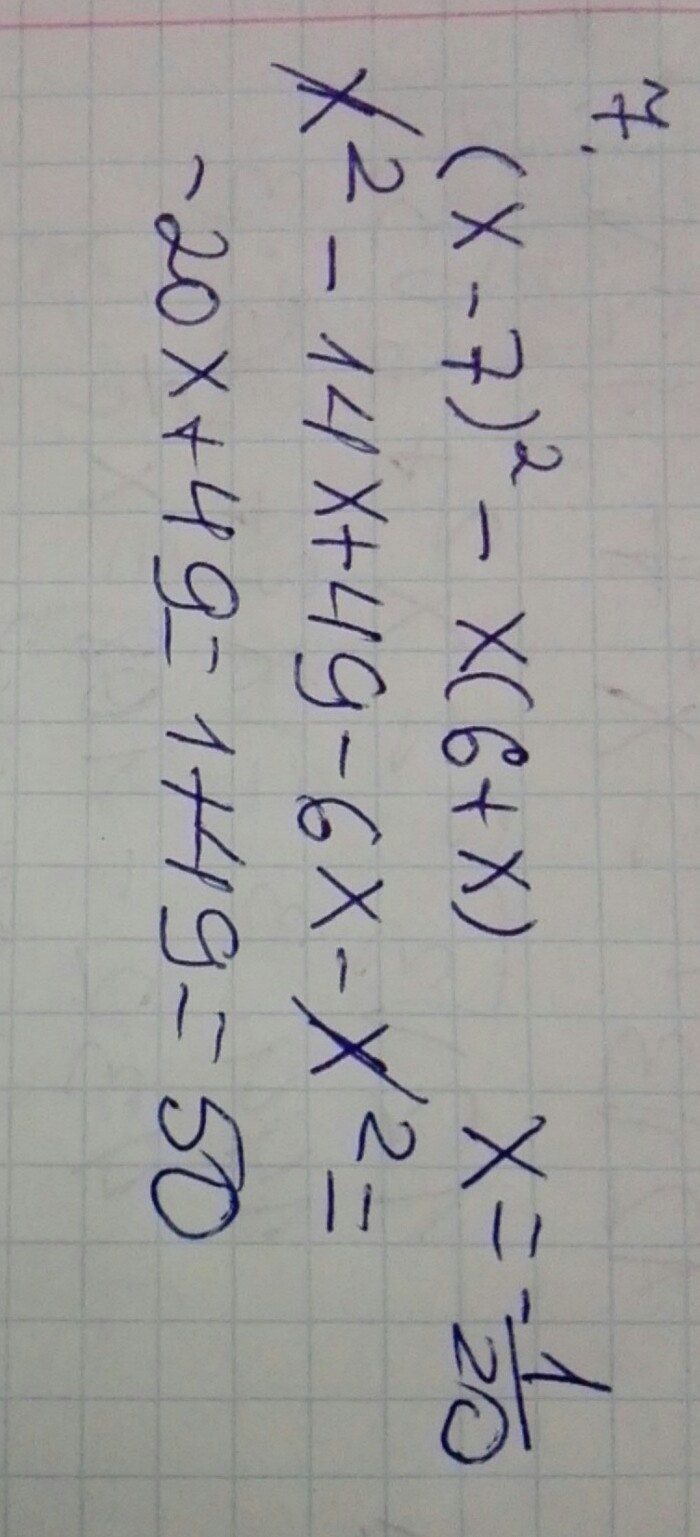 7.
(x - 7)² - x(6 + x)    x = -1/20
x² - 14x + 49 - 6x - x² =
- 20x + 49 = 1 + 49 = 50